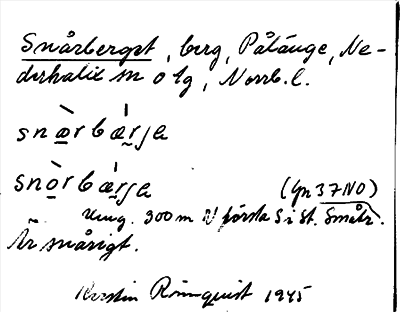 Snårberget, berg, Pålänge, Ne-
derkalix sn o lg, Norrb. l.
snòrbǽrje
snòrbærje
(Gn 37 NO)
Ung. 300 m N första S i St. Småtr.
Är snårigt.
Kerstin Rönnquist 1945